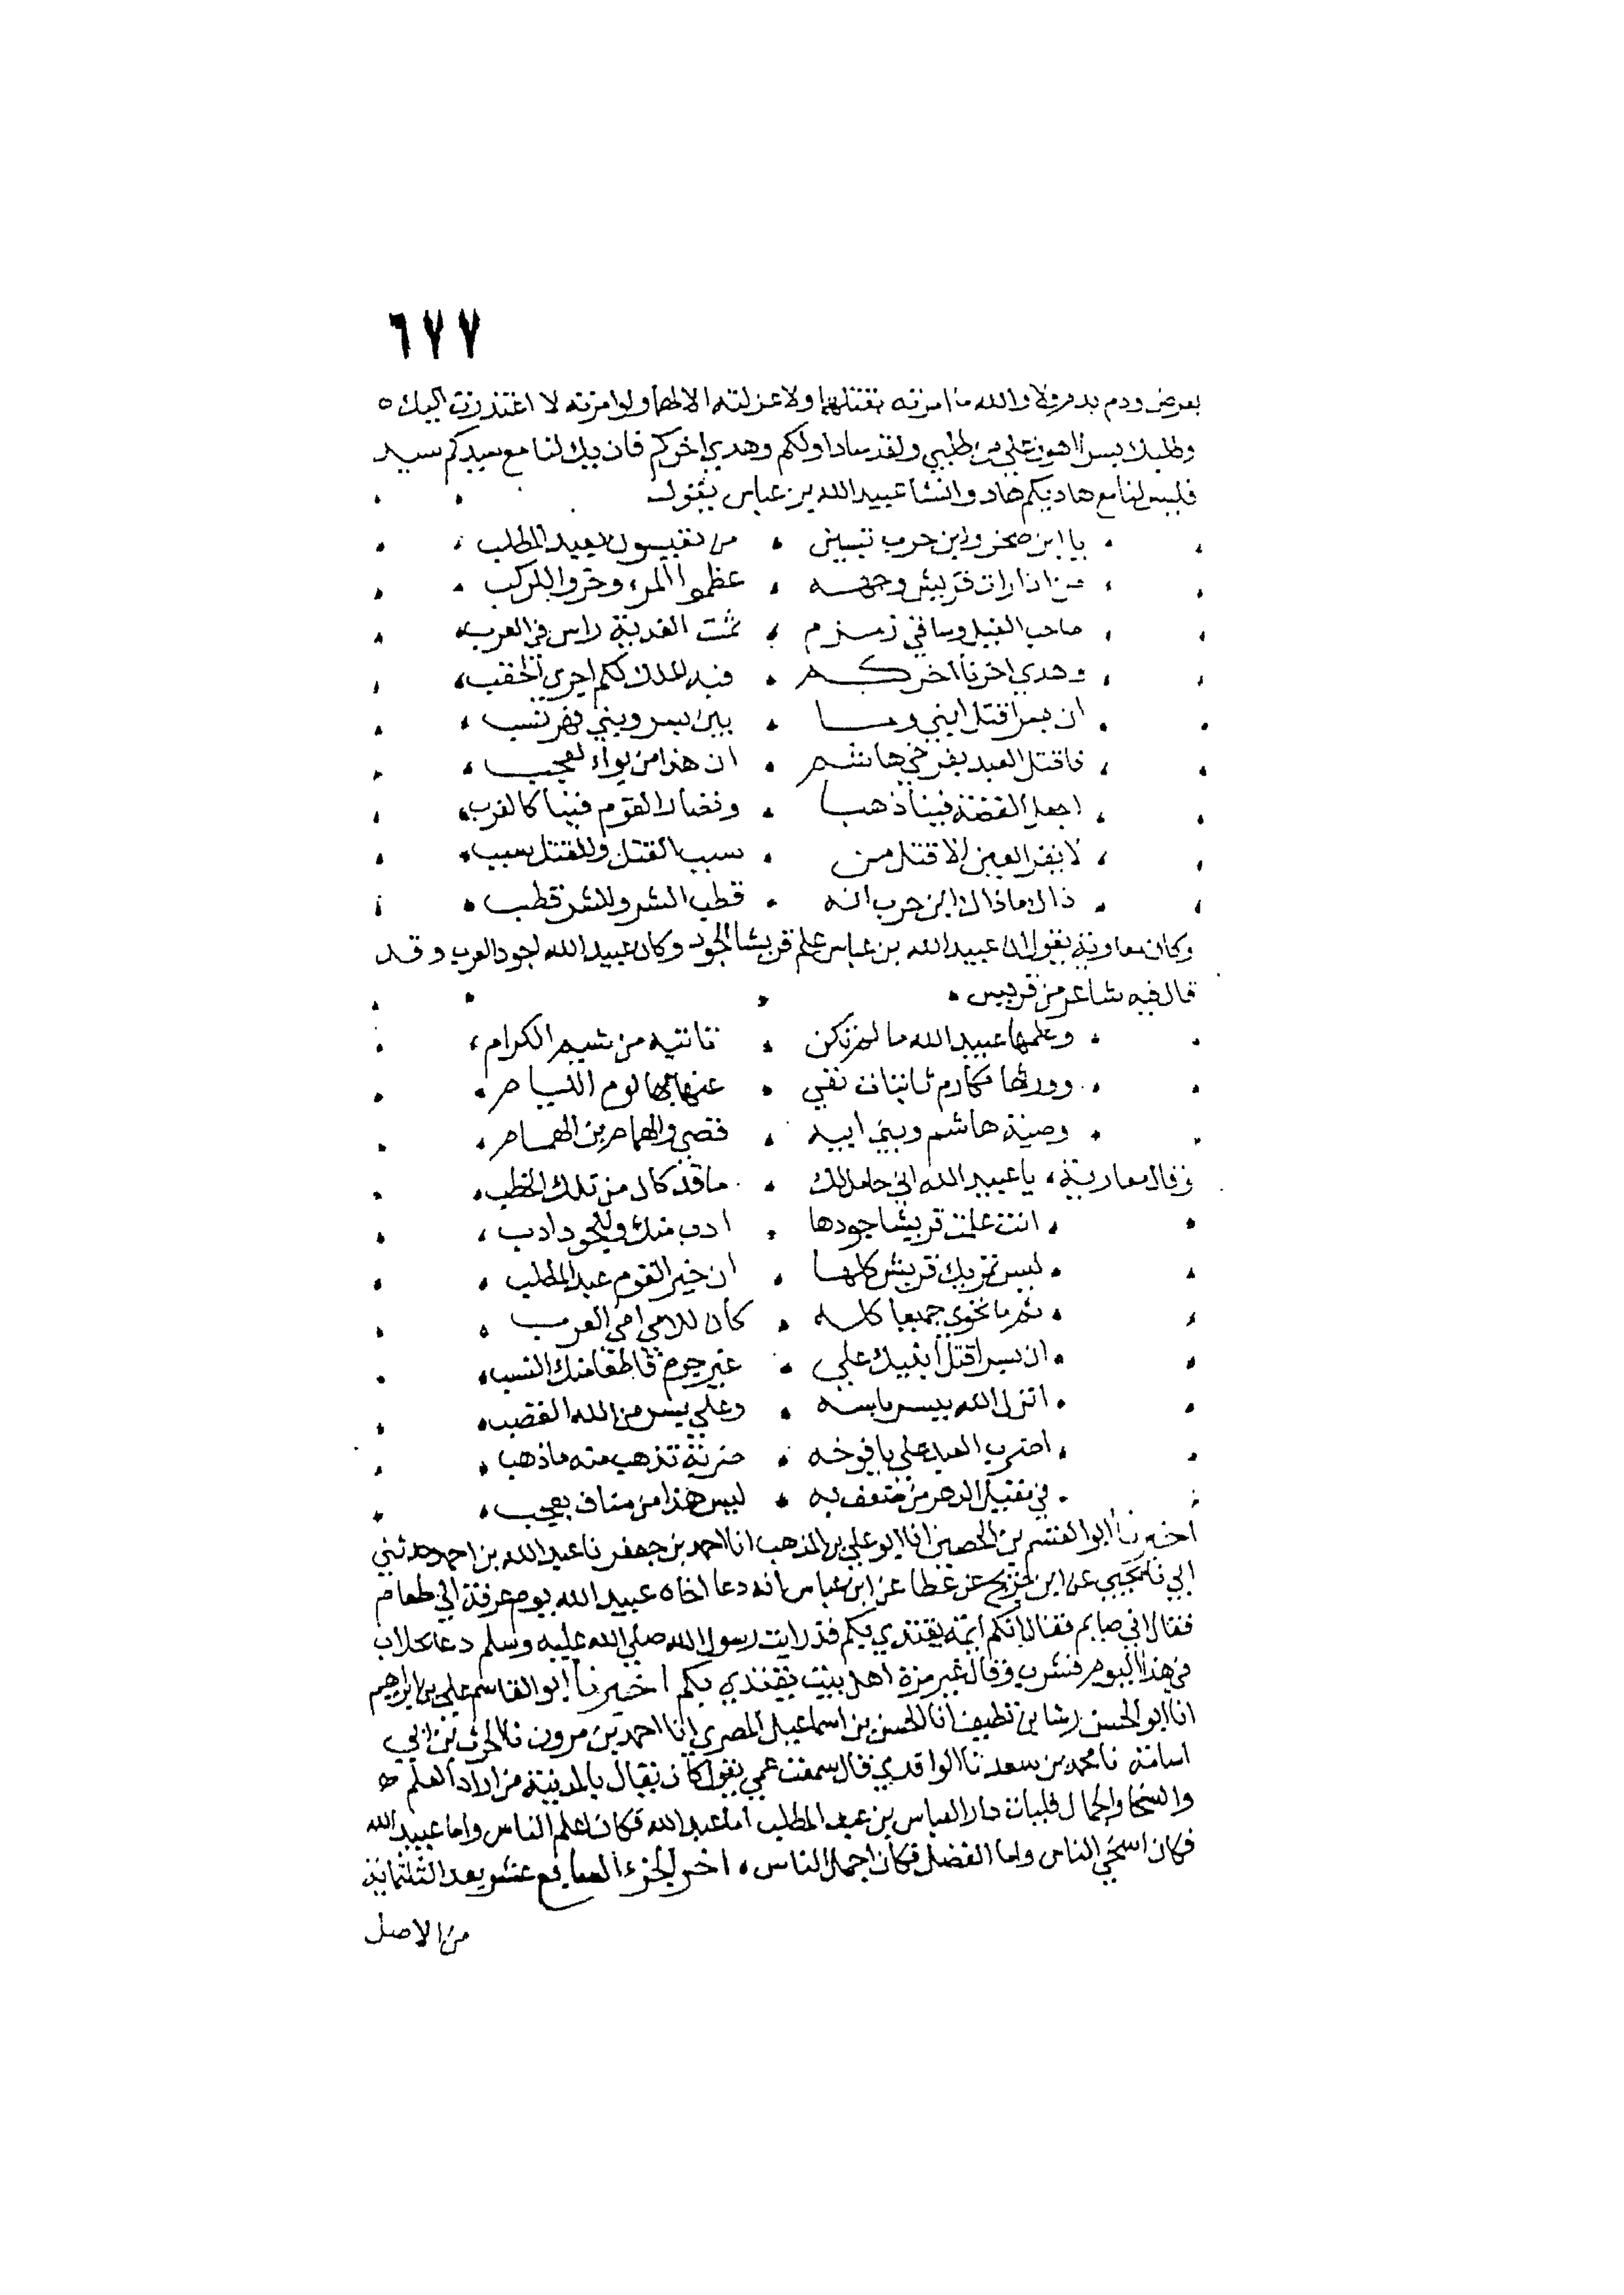 ٦٧٧
بعرض ودم بدم ولا والله ما امرته بقتلهما ولا عزلته الا لهما ولو امرته لا اعتذرت اليك ه
وطلبك بسرا اهون علي من طلبي ولقد ساد اولكم وهدي اخركم فان يك لنا مع سيدكم سيد
فليس لنا مع هاديكم هاد وانشا عبيد الله بن عباس يقول
يا ابن صخر وابن حرب تبيني من تقيسون بعبد المطلب
من اذا رات قريش وجهه عظموا المرء وخروا للركب
صاحب الفيل وساقي زمزم تمت الفدية راس في العرب
وهدي اخرنا اخركم فبه الملك لكم اجري الحقب
ان بسرا قتل ابني وما بين بسر وبني فهر نسب
فاقتل العبد بفرخي هاشم ان هذا من بواء لعجب
اجعل الفضة فينا ذهبا ونضار القوم فينا كالغرب
لا يقر العين الا قتل من سبب القتل وللقتل سبب
ذاك ماذاك ابن حرب انه قطب الشر وللشر قطب
وكان معاوية يقول ان عبيد الله بن عباس علم قريشا الجود وكان عبيد الله اجود العرب وقد
قال فيه شاعر من قريس
وعلمها عبيد الله ما لم تكن تاتيه من شيم الكرام
وورثها مكارم ثابتات نفي عنها بها لوم الليام
وصية هاشم وبني ابيه قصي والهمام بن الهمام
فقال معاوية يا عبيد الله اني حامل لك ما قد كان من تلك الخطب
انت علمت قريشا جودها ادب منك وللجود ادب
ليس تمريك قريش كلها ان خير القوم عبد المطلب
ثم ما نحوي جميعا كله كان للامي امي العرب
ان بسرا قتل ابنيك علي غير جرم قاطعا منك النسب
انزل الله ببسر باسه وعلي بسر من الله الغضب
اضرب العبد علي يافوخه ضربة تذهب منه ما ذهب
في قتيل الدهر من ليس هذا من مناف بعجب
اخبرنا ابو القسم بن الحصين انا ابو علي بن المذهب انا احمد بن جعفر نا عبد الله بن احمد حدثني
ابي نا يحيي عن ابن جريج عن عطا عن ابن عباس انه دعا اخاه عبيد الله يوم عرفة الي طعام
فقال اني صايم فقال انكم ايمة يقتدي بكم قد رايت رسول الله صلي الله عليه وسلم دعا بحلاب
في هذا اليوم فشرب وقال غير مرة اهل بيت يقتدي بكم اخبرنا ابو القاسم علي بن ابراهيم
انا ابو الحسن رشا بن نظيف انا الحسن بن اسماعيل المصري انا احمد بن مرون نا الحرث بن ابي
اسامة نا محمد بن سعد نا الواقدي قال سمعت عمي يقول كان يقال بالمدينة من اراد العلم ه
والسخا والجمال فليات دار العباس بن عبد المطلب اما عبد الله فكان اعلم الناس واما عبيد الله
فكان اسخي الناس واما الفضل فكان اجمل الناس اخر الجزء السابع عشر بعد الثلثمائة
من الاصل